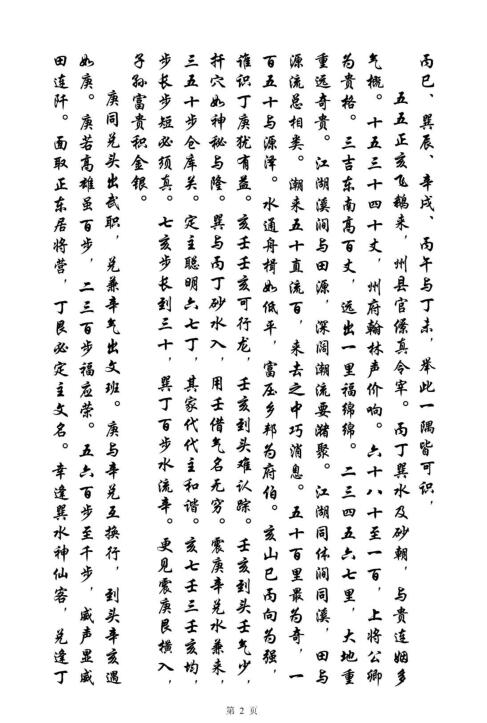 丙巳、巽辰、辛戌、丙午与丁未,举此一隅皆可识,
五五正亥飞鹅来,州县官僚真令宰。丙丁巽水及砂朝,与贵连姻多
气概。十五三十四十丈,州府翰林声价响。六十八十至一百,上将公卿
为贵格。三吉东南高百丈,远出一里福绵绵。二三四五六七里,大地重
重远奇贵。江湖溪涧与田源,深阔潮流要潴聚。江湖同体涧同溪,田与
源流总相类。潮来五十直流百,来去之中巧消息。五十百里最为奇,一
百五十与源泽。水通舟楫如低平,富压乡邦为府伯。亥山巳丙向为强,
谁识丁庚犹有益。亥壬壬亥可行龙,壬亥到头难认踪。壬亥到头壬气少,
扦穴如神秘与隆。巽与丙丁砂水入,用壬借气名无穷。震庚辛兑水兼来,
三五十步仓库关。定主聪明六七丁,其家代代主和谐。亥七壬三壬亥均,
步长步短必须真。七亥步长到三十,巽丁百步水流辛。更见震庚艮横入,
子孙富贵积金银。
庚同兑头出武职,兑兼辛气出文班。庚与辛兑互换行,到头辛亥遇
如庚。庚若高雄虽百步,二三百步福应荣。五六百步至千步,威声显威
田连阡。面取正东居将营,丁艮必定主文名。幸逢巽水神仙客,兑逢丁
第 2 页